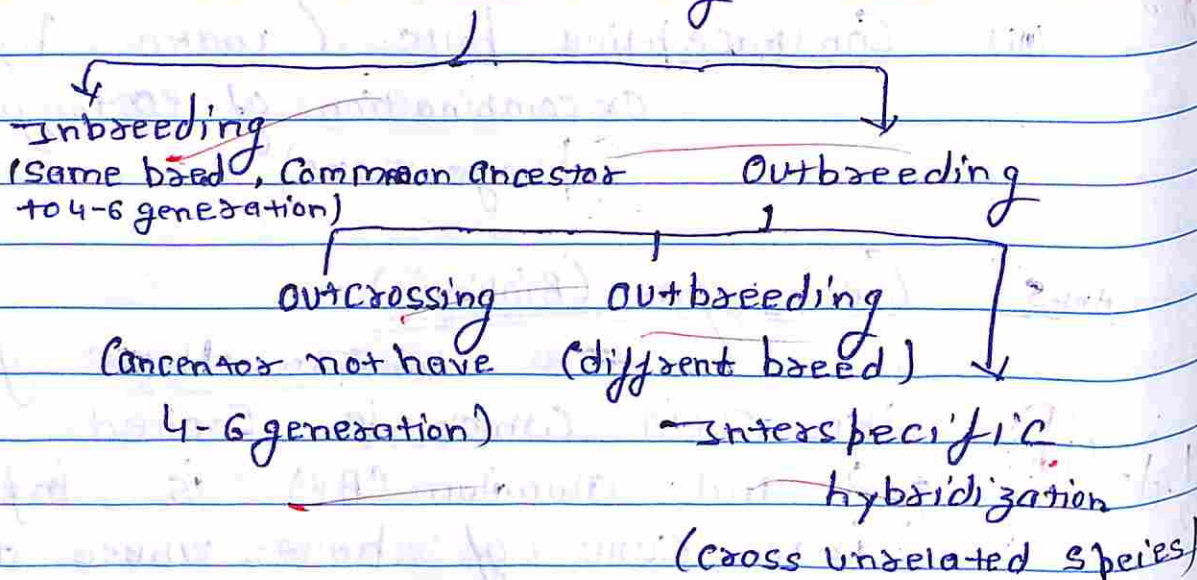 Inbreeding
(Same bread, Common ancestor
to 4-6 generation)
Outbreeding
Outcrossing
(ancentor not have
4-6 generation)
Outbreeding
(diffrent breed)
Interspecific
hybridization
(cross unrelated speies)